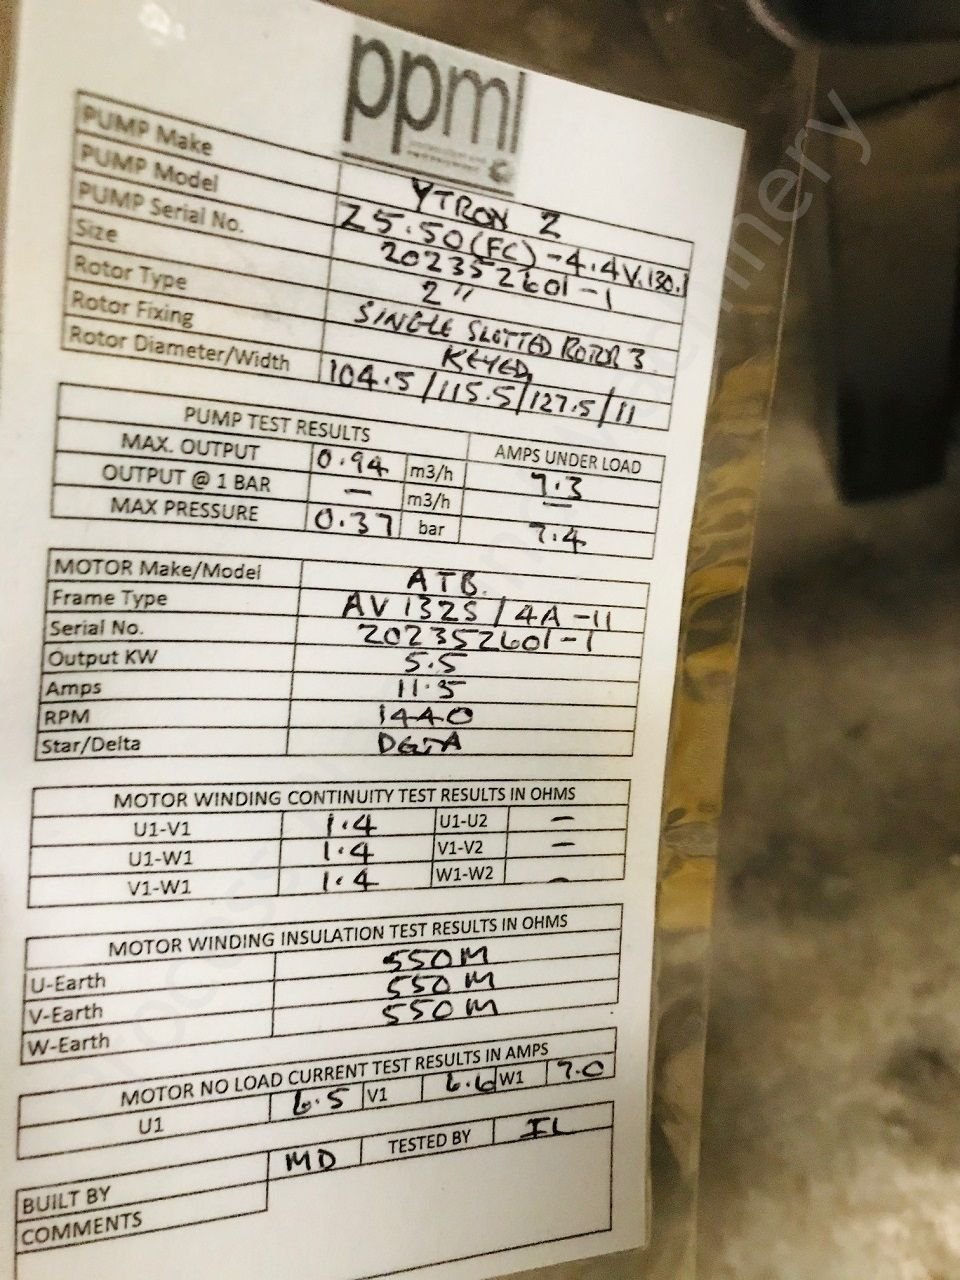 ppml
PUMP Make YTRON Z
PUMP Model Z5.50(FC)-4.4V.130.1
PUMP Serial No. 202352601-1
Size 2"
Rotor Type SINGLE SLOTTED ROTOR 3
Rotor Fixing KEYED
Rotor Diameter/Width 104.5/115.5/127.5/11
PUMP TEST RESULTS AMPS UNDER LOAD
MAX. OUTPUT 0.94 m3/h 7.3
OUTPUT @ 1 BAR — m3/h —
MAX PRESSURE 0.37 bar 7.4
MOTOR Make/Model ATB.
Frame Type AV 132S / 4A -11
Serial No. 202352601-1
Output KW 5.5
Amps 11.5
RPM 1440
Star/Delta DELTA
MOTOR WINDING CONTINUITY TEST RESULTS IN OHMS
U1-V1 1.4 U1-U2 —
U1-W1 1.4 V1-V2 —
V1-W1 1.4 W1-W2 —
MOTOR WINDING INSULATION TEST RESULTS IN OHMS
U-Earth 550M
V-Earth 550M
W-Earth 550M
MOTOR NO LOAD CURRENT TEST RESULTS IN AMPS
U1 6.5 V1 6.6 W1 7.0
BUILT BY MD TESTED BY IL
COMMENTS